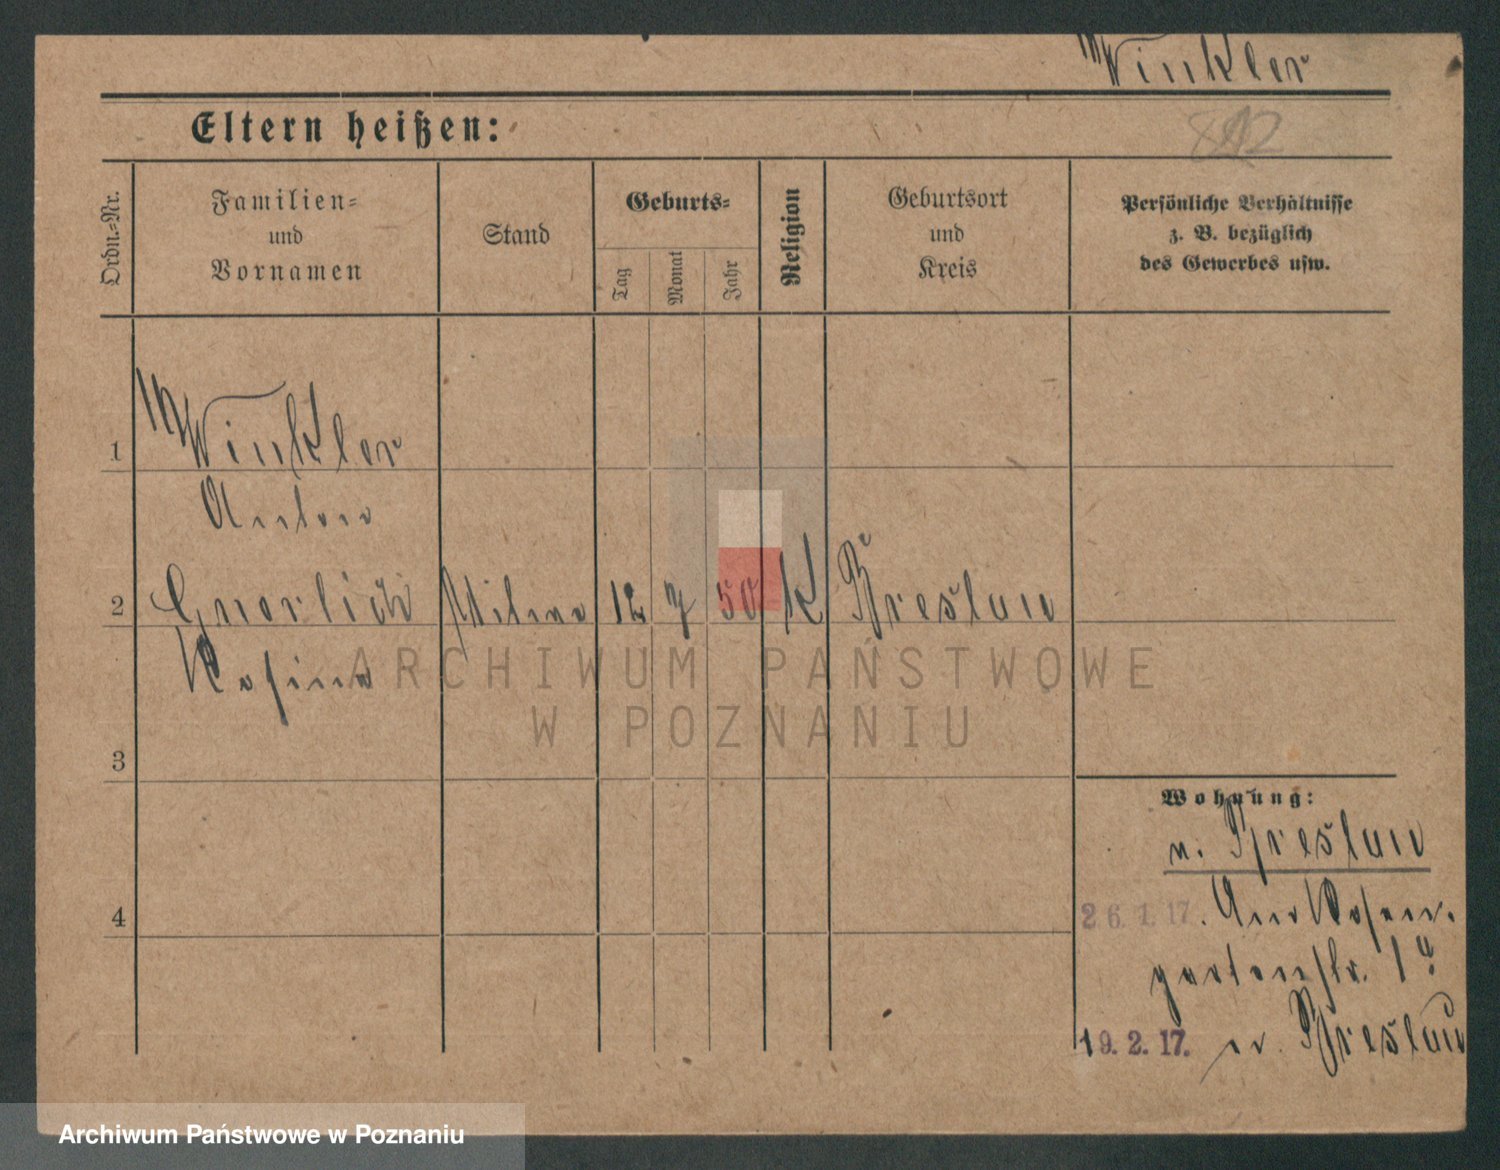 Winkler
Eltern heißen:
Ordn.-Nr.
Familien-
und
Vornamen
Stand
Geburts-
Tag
Monat
Jahr
Religion
Geburtsort
und
Kreis
Persönliche Verhältnisse
z. B. bezüglich
des Gewerbes usw.
1 Winkler
Anton
2 Gnerlich Witwe 12 7 50 K Breslau
Rosina
ARCHIWUM PAŃSTWOWE
W POZNANIU
3
Wohnung:
n. Breslau
4
26. 1. 17. Am Rosen-
gartenstr. 1a
19. 2. 17. n. Breslau
Archiwum Państwowe w Poznaniu